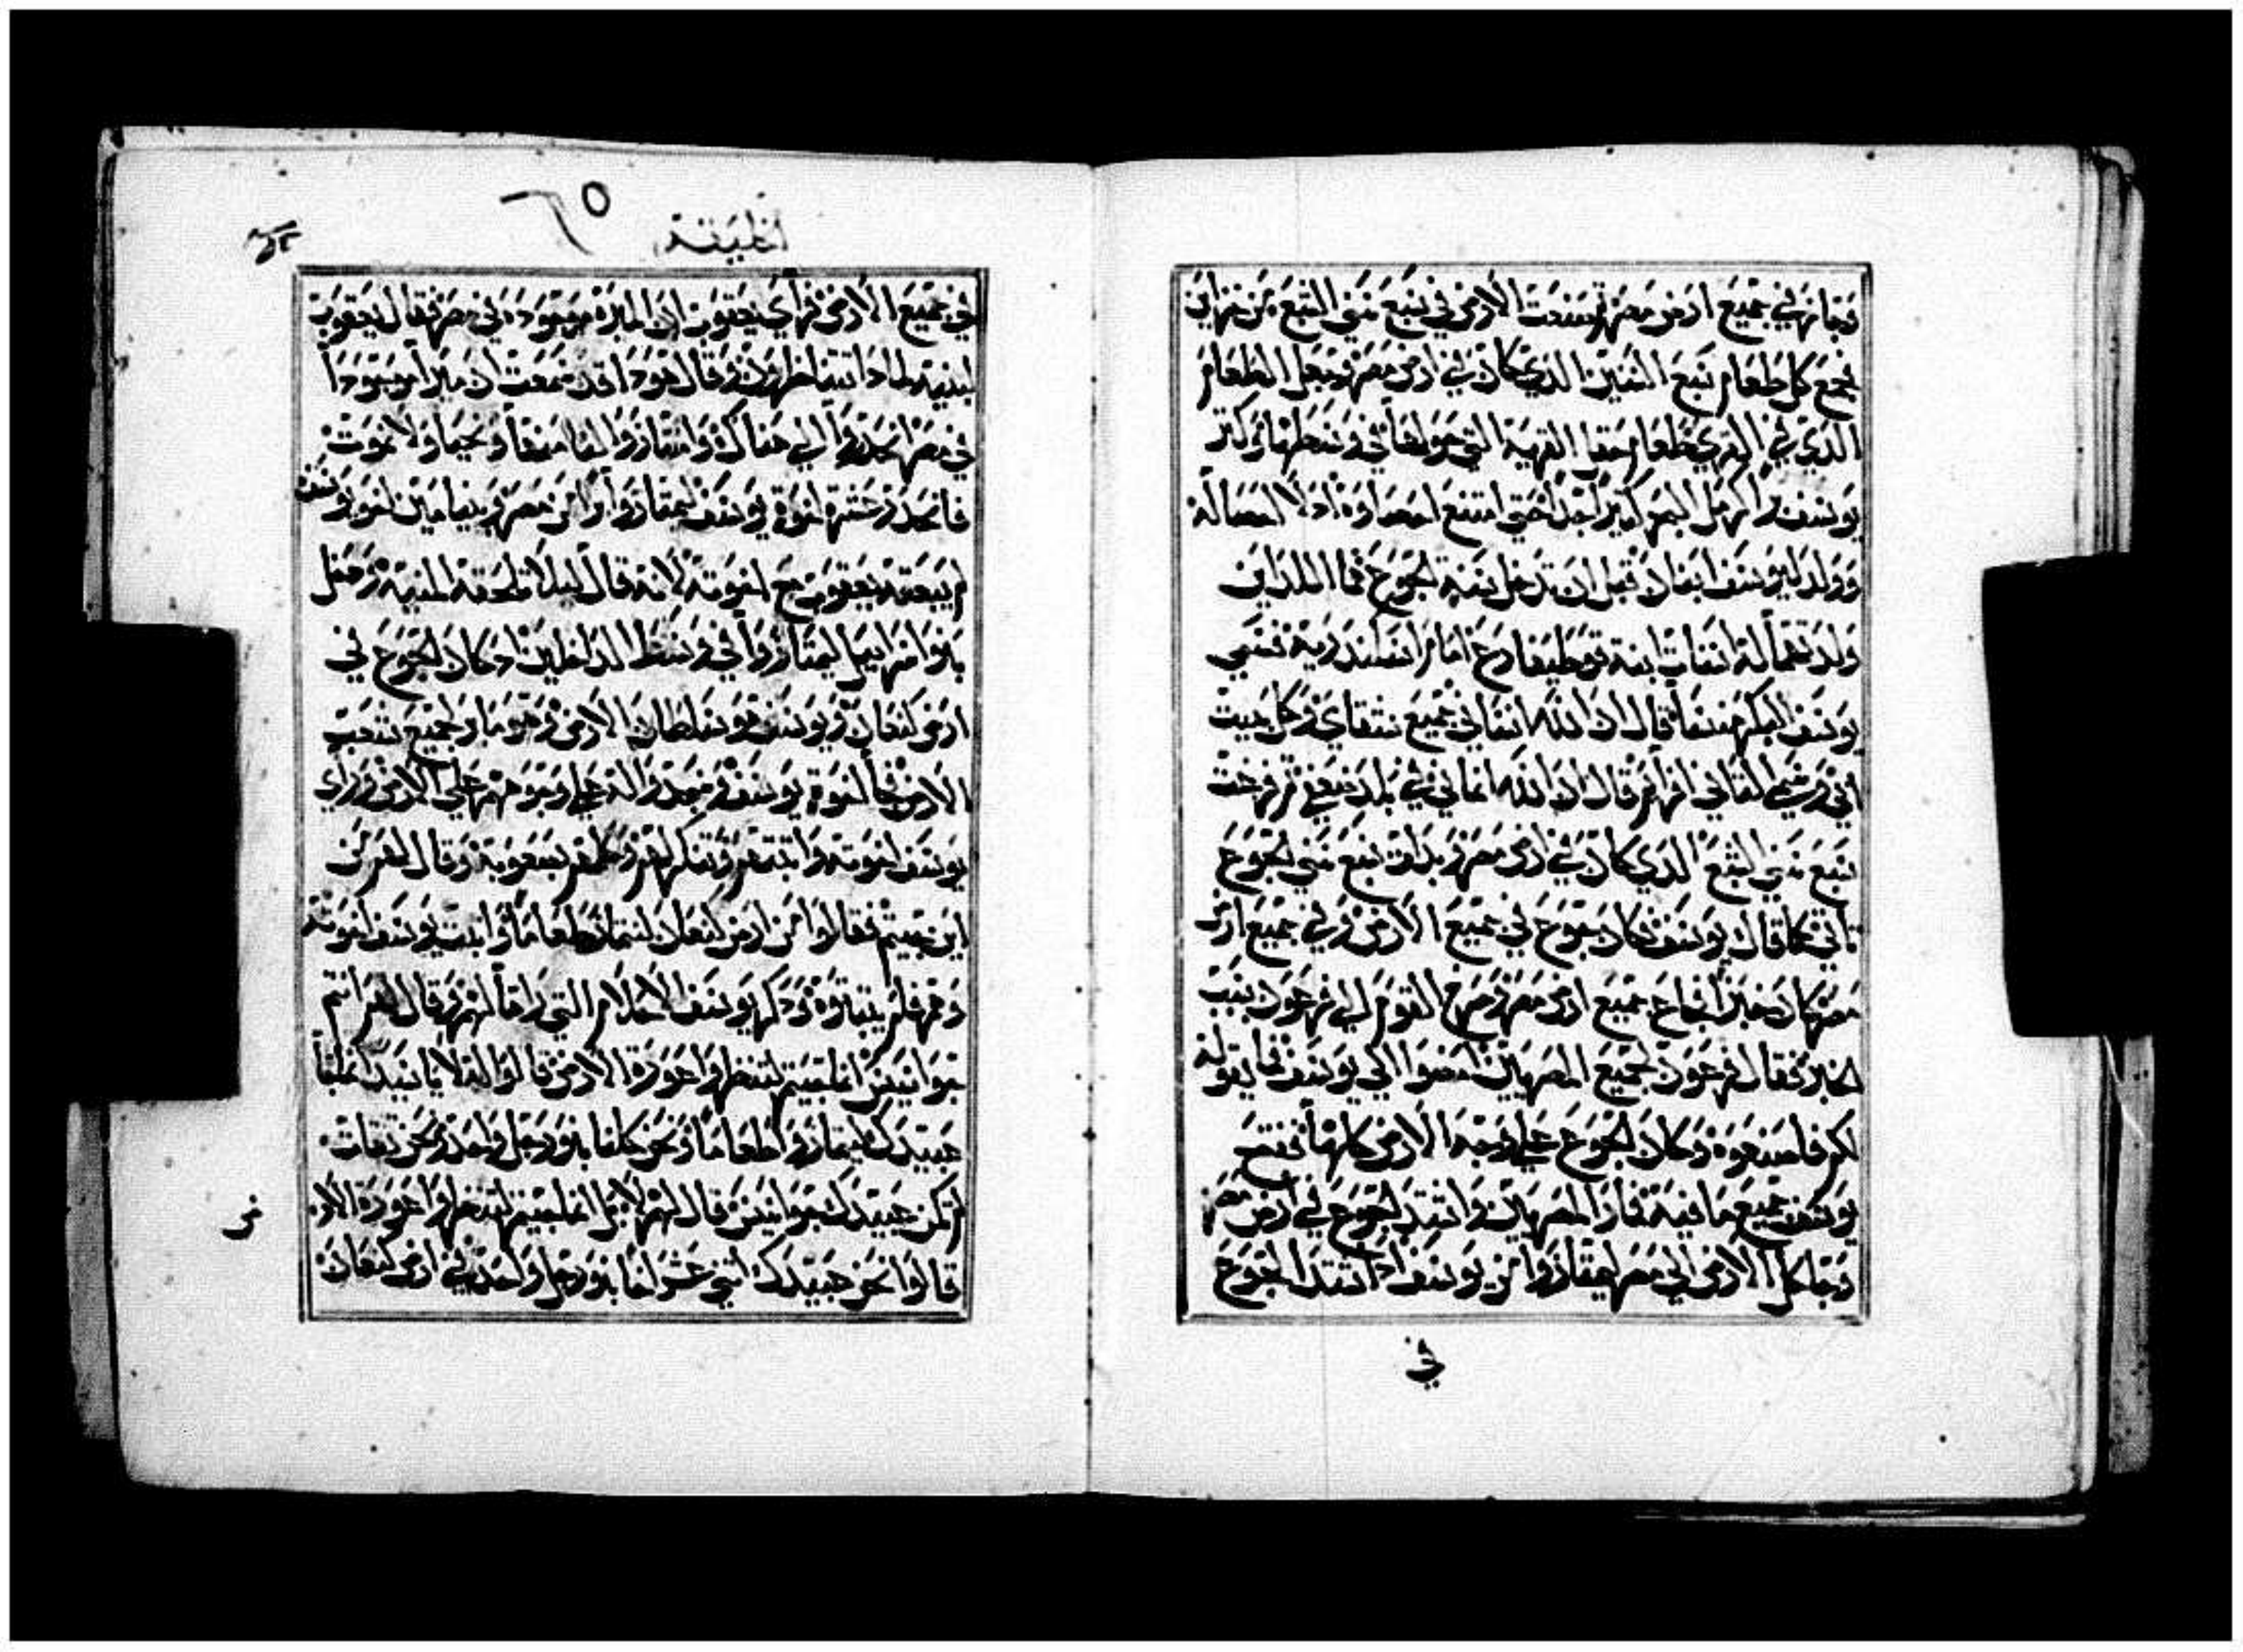 وجاز في جميع ارض مصر فصنعت الارض في سبع سني الشبع من خزاين
فجمع كل طعام سبع السنين الذي كان في ارض مصر وجعل الطعام
الذي في القري طعام حقل القرية التي حولها في وسطها وكنز
يوسف برا كرمل البحر كثير جدا حتى امتنع احصاوه اذ لا احصا له
وولد ليوسف ابنان قبل ان تدخل سنة الجوع فما اللذان
ولدتهما له اسنات ابنة فوطيفارع امام اسكندرية فسمي
يوسف البكر منسا قال ان الله انساني جميع شقاي وكل بيت
ابي وسمي الثاني افرام قال ان الله انماني في بلد ضعفي ثم فرغت
سبع سني الشبع الذي كان في ارض مصر وبدات سبع سني الجوع
تاتي كما قال يوسف فكان جوع في جميع الارض وفي جميع ارض
مصر كان خبز فجاع جميع ارض مصر وصرخ القوم الى فرعون بسبب
الخبز فقال فرعون لجميع المصريين امضوا الى يوسف فما يقوله
لكم فاصنعوه وكان الجوع على وجه الارض كلها ففتح
يوسف جميع ما فيه فمار المصريين واشتد الجوع في ارض مصر
وجا كل الارض الى مصر ليمتازوا من يوسف اذ اشتد الجوع
في
الخليقة
٦٥
في جميع الارض فراي يعقوب ان الميرة موجوده في مصر فقال يعقوب
لبنيه لماذا انتم تنظرون وقال هوذا قد سمعت ان ميرا موجودا
في مصر انحدروا الى هناك وامتاروا لنا منها ونحيا ولا نموت
فانحدر عشرة اخوة يوسف ليمتاروا برا من مصر وبنيامين اخو يوسف
لم يبعثه يعقوب مع اخوته لانه قال ليلا تلحقه المنية ودخل
بنوا اسراييل ليمتاروا في وسط الداخلين اذ كان الجوع في
ارض كنعان ويوسف هو سلطان الارض وهو مار جميع شعب
الارض فجا اخوة يوسف وسجدوا له على وجوههم على الارض وراي
يوسف اخوته واثبتهم وتنكر لهم وكلمهم بصعوبة وقال لهم من
اين جيتم فقالوا من ارض كنعان لنمتار طعاما واثبت يوسف اخوته
وهم فلم يثبتوه وذكر يوسف الاحلام التي راها لهم وقال لهم انتم
جواسيس انما جيتم لتنظروا عورة الارض قالوا له لا يا سيد انما جا
عبيدك ليمتاروا طعاما ونحن كلنا بنو رجل واحد ونحن ثقات
لم تكن عبيدك جواسيس قال لهم لا بل انما جيتم لتنظروا عورة الارض
قالوا نحن عبيدك اثني عشر اخا بنو رجل واحد في ارض كنعان